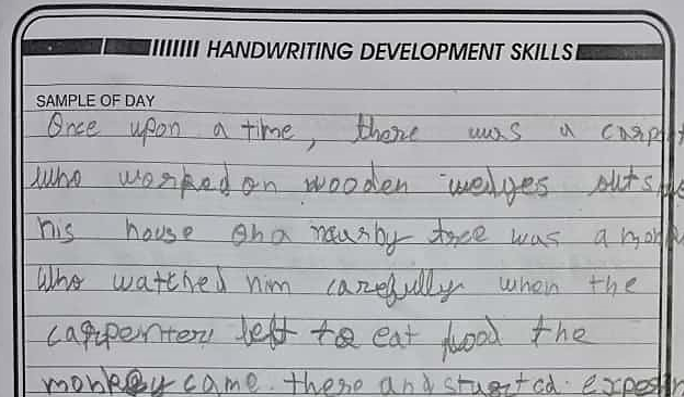 HANDWRITING DEVELOPMENT SKILLS
SAMPLE OF DAY
Once upon a time, there was a carp
who worked on wooden wedges outs
his house on a nearby tree was a mon
Who watched him carefully when the
carpenter left to eat food the
monkey came. there and started.